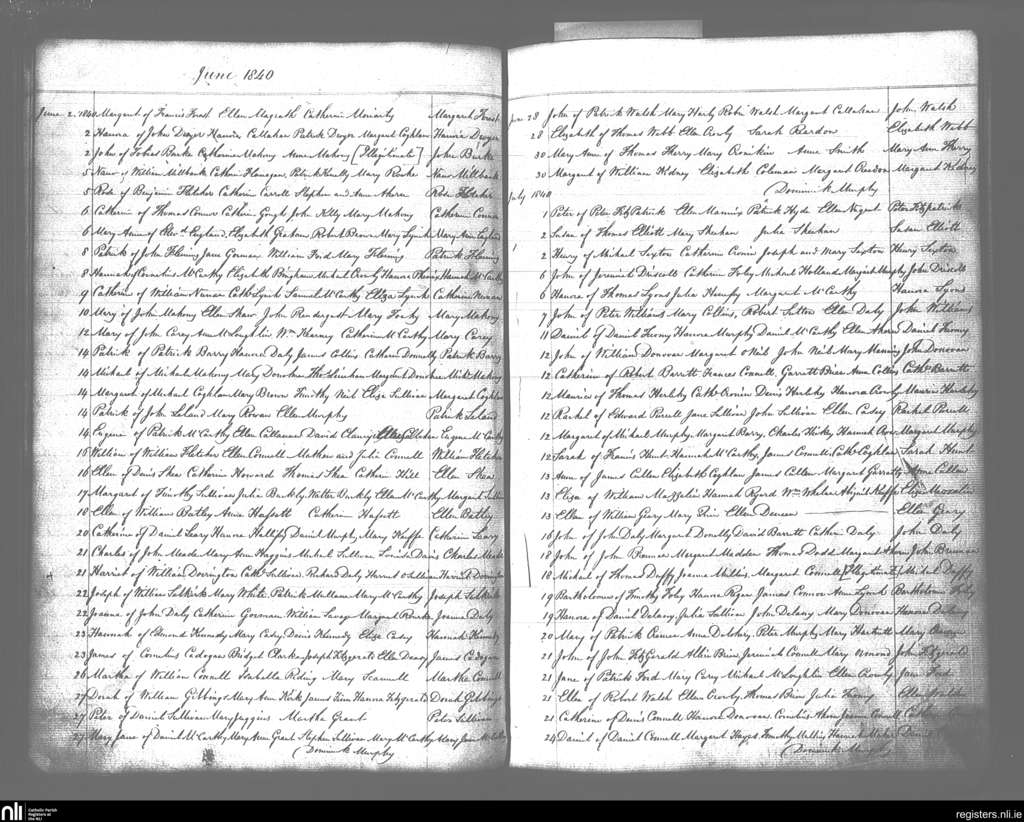 June 1840
June 2. 1840 Margaret of Francis Forest Ellen Magrath Catherin Moriarty Margaret Forest
2 Hanora of John Dwyer Hanora Callahan Patrick Dwyer Margaret Coghlan Hanora Dwyer
2 John of Tobias Burke Catherine Mahony Anne Mahony [Illegitimate] John Burke
5 of William Millbank Catherin Flanegan Patrick Mary Rourke Millbank
5 Rose of Benjamin Fletcher Catherin Carroll Stephen and Ann Ahern Rose Fletcher
6 Catherin of Thomas Connor Catherin Gough John Kelly Mary Mahony Catherin Connor
6 Mary Anne of England, Elizabeth Graham Robert Mary Lynch Mary Ann England
8 Patrick of John Fleming Jane Gorman William Ford Mary Fleming Patrick Fleming
8 Hannah of Cornelius McCarthy Elizabeth Bingham Michael Crowly Hanora Hannah McCarthy
9 Catherin of William Nunan Cath. Lynch Samuel McCarthy Eliza Lynch Catherin Nunan
10 Mary of John Mahony Ellen Shaw John Prendergast Mary Mary Mahony
12 Mary of John Carey Ann McLoughlin Wm Kearny Catherin McCarthy Mary Carey
14 Patrick of Patrick Barry Hanora Daly James Collins Catherin Donnelly Patrick Barry
14 Michael of Michael Mahony Mary Donohue Thos Linehan Margaret Donohue Mich Mahony
14 Margaret of Michael Coghlan Mary Brown Timothy Neil Eliza Sullivan Margaret Coghlan
14 Patrick of John Leland Mary Rowan Ellen Murphy Patrick Leland
14 Eugene of Patrick McCarthy Ellen Callanan David Clancy Eugene McCarthy
15 William of William Fletcher Ellen Connell Mathew and Julia Connell William Fletcher
16 Ellen of Denis Shea Catherin Howard Thomas Shea Catherin Hill Ellen Shea
17 Margaret of Timothy Sullivan Julia Buckly Walter Buckly Ellen McCarthy Margaret Sullivan
18 Ellen of William Batley Anne Hassett Catherin Hassett Ellen Batley
20 Catherine of Daniel Leary Hanora Daniel Murphy Mary Keeffe Catherin Leary
21 Charles of John Meade Mary Ann Haggins Michael Sullivan Louisa Davis Charles Meade
21 Harriet of William Dorington Cath. Sullivan Richard Daly Harriet O Sullivan Harriet Dorington
22 Joseph of William Selkirk Mary White Patrick Mullane Mary McCarthy Joseph Selkirk
22 Joanna of John Daly Catherin Gorman William Savage Margaret Rourke Joanna Daly
23 Hannah of Edmond Kennedy Mary Casey Denis Kennedy Eliza Casey Hannah Kennedy
23 James of Cornelius Cadogan Bridget Clarke Joseph Fitzgerald Ellen Deasy James Cadogan
26 Martha of William Connell Isabella Riding Mary Scannell Martha Connell
27 Dorah of William Gibbings Mary Ann Kirk James Kirn Hanna Fitzgerald Dorah Gibbings
27 Peter of Daniel Sullivan Mary Jaggins Martha Grant Peter Sullivan
27 Mary Jane of Daniel McCarthy Mary Ann Grant Stephen Sullivan Mary McCarthy Mary Jane McCarthy
Dominick Murphy
June 28 John of Patrick Walsh Mary Hurly Robin Walsh Margaret Callahan John Walsh
28 Elizabeth of Thomas Webb Ellen Crowly Sarah Reardon Elizabeth Webb
30 Mary Anne of Thomas Sherry Mary Cronikin Anne Smith Mary Ann Sherry
30 Margaret of William Kidney Elizabeth Coleman Margaret Reardon Margaret Kidney
Dominick Murphy
July 1840
1 Peter of Peter FitzPatrick Ellen Manning Patrick Hyde Ellen Nugent Peter Fitzpatrick
2 Susan of Thomas Elliott Mary Sheehan Julia Sheehan Susan Elliott
2 Henry of Michael Sexton Catherine Cronin Joseph and Mary Sexton Henry Sexton
6 John of Jeremiah Driscoll Catherin Foley Michael Holland Margaret Murphy John Driscoll
6 Hanora of Thomas Lyons Julia Humphy Margaret McCarthy Hanora Lyons
7 John of Peter Williams Mary Collins, Robert Sutton Ellen Daly John Williams
11 Daniel of Daniel Twomy Hanora Murphy Daniel McCarthy Ellen Ahern Daniel Twomy
12 John of William Donovan Margaret O Neil John Neil Mary Manning John Donovan
12 Catherin of Robert Barrett Frances Connell, Garrett Brien Ann Collins Cath. Barrett
12 Maurice of Thomas Herlihy Cath. Cronin Denis Herlihy Hanora Crowly Maurice Herlihy
12 Rachel of Edward Powell Jane Sullivan John Sullivan Ellen Casey Rachel Powell
12 Margaret of Michael Murphy Margaret Barry, Charles Hickey Hannah Margaret Murphy
12 Sarah of Francis Hunt Hannah McCarthy James Connell Cath. Coghlan Sarah Hunt
13 Anne of James Cullen Elizabeth Coghlan James Cullen Margaret Garrett Anne Cullen
13 Eliza of William Hannah Wm Whelan Abigail Keeffe Eliza
13 Ellen of William Geary Mary Ellen Ellen Geary
16 John of John Daly Margaret Donelly David Barrett Cather Daly John Daly
18 John of John Brennan Margaret Madden Thomas Dodd Margaret Ahern John Brennan
18 Michael of Thomas Duffy Joanna Mullins, Margaret Connell [Illegitimate] Michael Duffy
19 Bartholomew of Timothy Foley Hanora James Connor Ann Lynch Bartholomew Foley
19 Hanora of Daniel Delany, Julia Sullivan John Delany Mary Donovan Hanora Delany
20 Mary of Patrick Anne Peter Murphy Mary Hartnett Mary
21 John of John FitzGerald Alice Brien Jeremiah Connell Mary Ormond John Fitzgerald
21 Jane of Patrick Ford Mary Cary Michael McLoughlin Ellen Crowly Jane Ford
21 Ellen of Robert Walsh Ellen Crowly, Thomas Brien Julia Twomy Ellen Walsh
21 Catherine of Denis Connell Hanora Donovan. Cornelius Ahern Joanna Connell
24 Daniel of Daniel Connell Margaret Hayes, Timothy Mullins Hannah
Dominick Murphy
nli Catholic Parish
Registers at
the NLI
registers.nli.ie